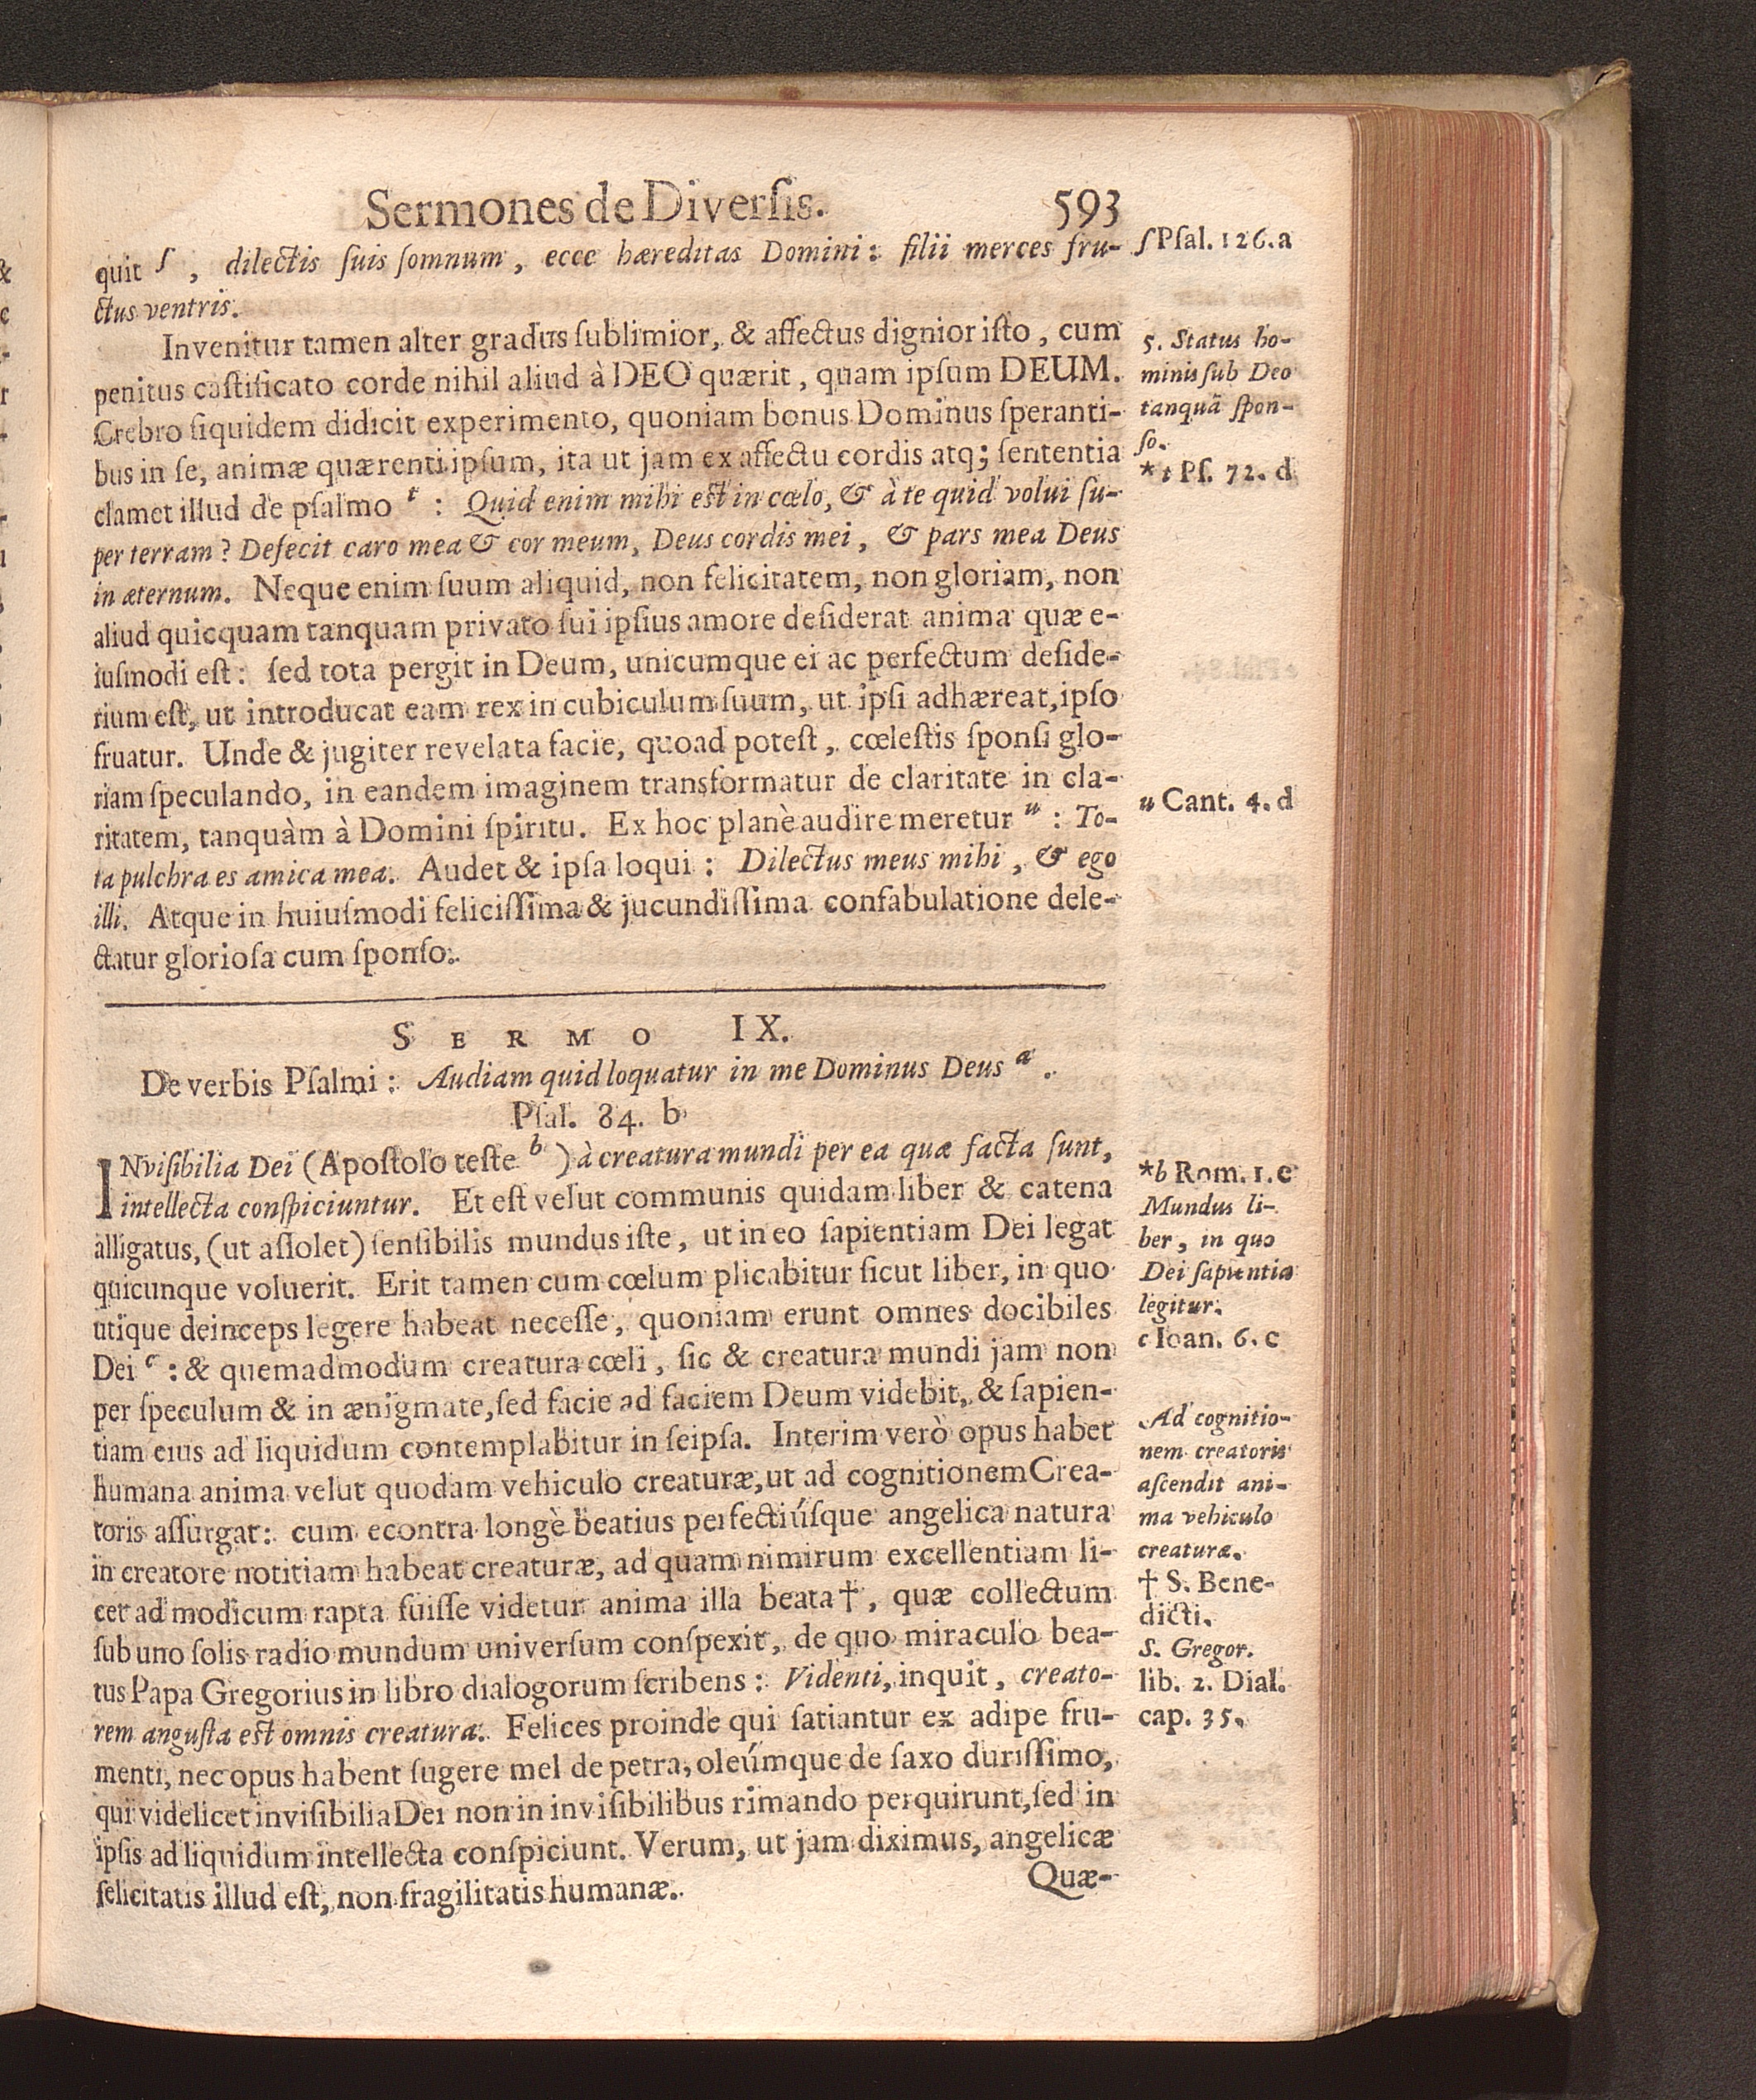 Sermones de Diverſis. 593
quit ſ, dilectis ſuis ſomnum, ecce hæreditas Domini: filii merces fru-
ctus ventris.
Invenitur tamen alter gradus ſublimior, & affectus dignior iſto, cum
penitus caſtificato corde nihil aliud à DEO quærit, quam ipſum DEUM.
Crebro ſiquidem didicit experimento, quoniam bonus Dominus ſperanti-
bus in ſe, animæ quærenti ipſum, ita ut jam ex affectu cordis atq; ſententia
clamet illud de pſalmo t : Quid enim mihi est in cœlo, & à te quid volui ſu-
per terram? Defecit caro mea & cor meum, Deus cordis mei, & pars mea Deus
in æternum. Neque enim ſuum aliquid, non felicitatem, non gloriam, non
aliud quicquam tanquam privato ſui ipſius amore deſiderat anima quæ e-
iuſmodi eſt: ſed tota pergit in Deum, unicumque ei ac perfectum deſide-
rium eſt, ut introducat eam rex in cubiculum ſuum, ut ipſi adhæreat, ipſo
fruatur. Unde & jugiter revelata facie, quoad poteſt, cœleſtis ſponſi glo-
riam ſpeculando, in eandem imaginem transformatur de claritate in cla-
ritatem, tanquàm à Domini ſpiritu. Ex hoc planè audire meretur u : To-
ta pulchra es amica mea. Audet & ipſa loqui: Dilectus meus mihi, & ego
illi. Atque in huiuſmodi feliciſſima & jucundiſſima confabulatione dele-
ctatur glorioſa cum ſponſo.
SERMO IX.
De verbis Pſalmi: Audiam quid loquatur in me Dominus Deus a.
Pſal. 84. b
INviſibilia Dei (Apoſtolo teſte b) à creatura mundi per ea quæ facta ſunt,
intellecta conſpiciuntur. Et eſt velut communis quidam liber & catena
alligatus, (ut aſſolet) ſenſibilis mundus iſte, ut in eo ſapientiam Dei legat
quicunque voluerit. Erit tamen cum cœlum plicabitur ſicut liber, in quo
utique deinceps legere habeat neceſſe, quoniam erunt omnes docibiles
Dei c: & quemadmodum creatura cœli, ſic & creatura mundi jam non
per ſpeculum & in ænigmate, ſed facie ad faciem Deum videbit, & ſapien-
tiam eius ad liquidum contemplabitur in ſeipſa. Interim verò opus habet
humana anima velut quodam vehiculo creaturæ, ut ad cognitionem Crea-
toris aſſurgat: cum econtra longè beatius perfectiúſque angelica natura
in creatore notitiam habeat creaturæ, ad quam nimirum excellentiam li-
cet ad modicum rapta fuiſſe videtur anima illa beata †, quæ collectum
ſub uno ſolis radio mundum univerſum conſpexit, de quo miraculo bea-
tus Papa Gregorius in libro dialogorum ſcribens: Videnti, inquit, creato-
rem anguſta est omnis creatura. Felices proinde qui ſatiantur ex adipe fru-
menti, nec opus habent ſugere mel de petra, oleúmque de ſaxo duriſſimo,
qui videlicet inviſibilia Dei non in inviſibilibus rimando perquirunt, ſed in
ipſis ad liquidum intellecta conſpiciunt. Verum, ut jam diximus, angelicæ
felicitatis illud eſt, non fragilitatis humanæ.
Quæ-
ſ Pſal. 126. a
5. Status ho-
minis ſub Deo
tanquã ſpon-
ſo.
* t Pſ. 72. d
u Cant. 4. d
*b Rom. 1. c
Mundus li-
ber, in quo
Dei ſapientia
legitur.
c Ioan. 6. c
Ad cognitio-
nem creatoris
aſcendit ani-
ma vehiculo
creaturæ.
† S. Bene-
dicti.
S. Gregor.
lib. 2. Dial.
cap. 35.